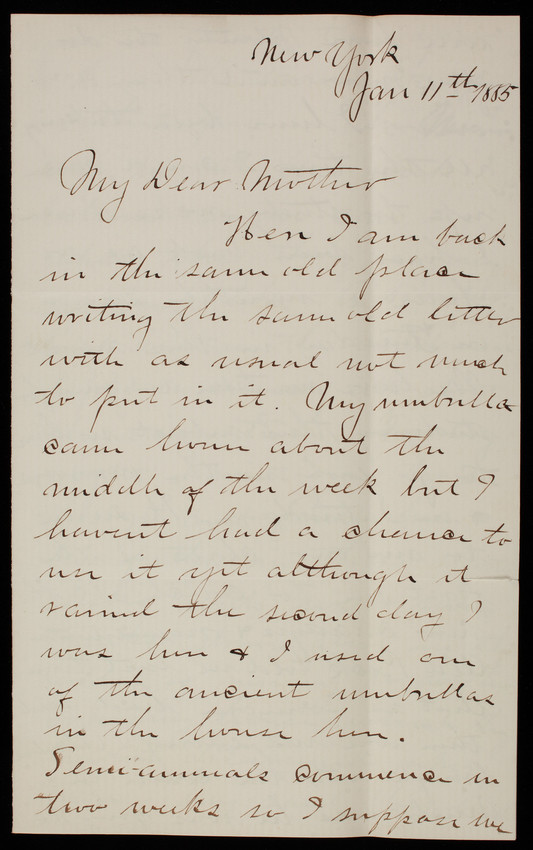 New York
Jan 11th 1885
My Dear Mother
Here I am back
in the same old place
writing the same old letter
with as usual not much
to put in it. My umbrella
came home about the
middle of the week but I
havent had a chance to
use it yet although it
rained the second day I
was here & I used one
of the ancient umbrellas
in the house here.
Semi-annuals commence in
two weeks so I suppose we